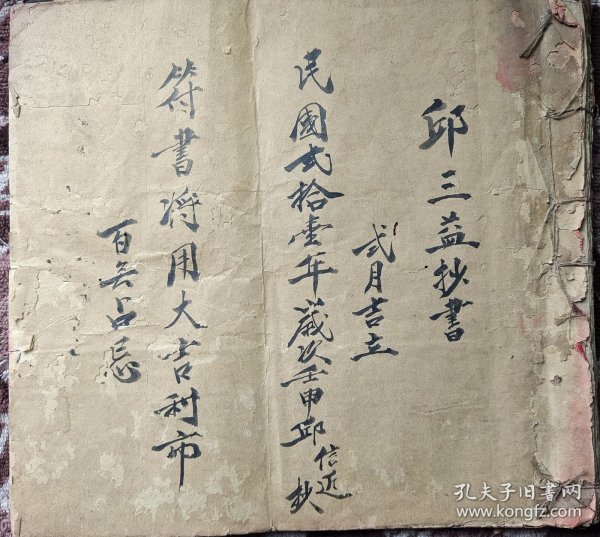 邱三益抄書
弍月吉立
民國弍拾壹年歲次壬申邱信近抄
符書將用大吉利市
百無占忌
孔夫子旧书网
www.kongfz.com